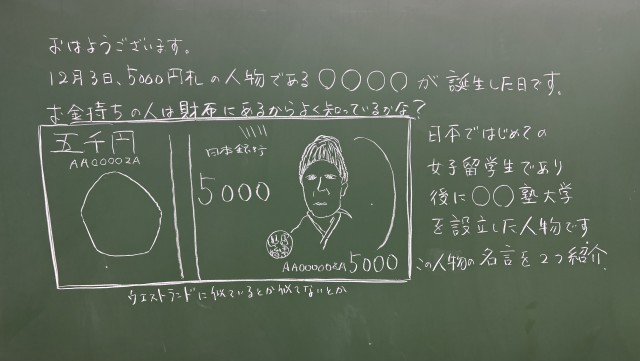 おはようございます。
12月3日、5000円札の人物である〇〇〇〇が誕生した日です。
お金持ちの人は財布にあるからよく知っているかな?
五千円
AA000002A
日本銀行
5000
AA000002A 5000
日本ではじめての
女子留学生であり
後に〇〇塾大学
を設立した人物です
この人物の名言を2つ紹介
ウエストランドに似ているとか似てないとか